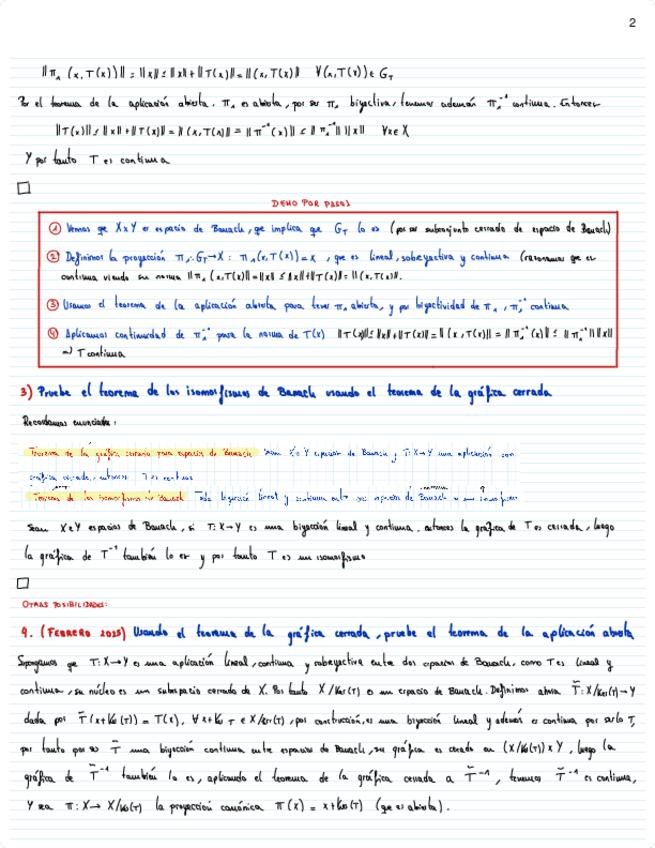 2
‖π₁(x,T(x))‖ = ‖x‖ ≤ ‖x‖+‖T(x)‖ = ‖(x,T(x))‖ ∀(x,T(x)) ∈ G_T
Por el teorema de la aplicación abierta, π₁ es abierta, por ser π₁ biyectiva, tenemos además π₁⁻¹ continua. Entonces
‖T(x)‖ ≤ ‖x‖+‖T(x)‖ = ‖(x,T(x))‖ = ‖π₁⁻¹(x)‖ ≤ ‖π₁⁻¹‖‖x‖ ∀x∈X
Y por tanto T es continua
□
DEMO POR PASOS
① Vemos qe XxY es espacio de Banach, qe implica que G_T lo es (por ser subconjunto cerrado de espacio de Banach)
② Definimos la proyección π₁: G_T→X : π₁(x,T(x))=x, que es lineal, sobreyectiva y continua (razonamos qe es
continua viendo su norma ‖π₁(x,T(x))‖=‖x‖ ≤ ‖x‖+‖T(x)‖=‖(x,T(x))‖.
③ Usamos el teorema de la aplicación abierta para tener π₁ abierta, y por biyectividad de π₁, π₁⁻¹ continua
④ Aplicamos continuidad de π₁⁻¹ para la norma de T(x) ‖T(x)‖≤‖x‖+‖T(x)‖=‖(x,T(x))‖=‖π₁⁻¹(x)‖ ≤ ‖π₁⁻¹‖‖x‖
⇒ T continua
3) Pruebe el teorema de los isomorfismos de Banach usando el teorema de la gráfica cerrada
Recordamos enunciados:
Teorema de la gráfica cerrada para espacios de Banach Sean X e Y espacios de Banach y T:X→Y una aplicación con
gráfica cerrada, entonces T es continua
Teorema de los isomorfismos de Banach Toda biyección lineal y continua entre dos espacios de Banach es un isomorfismo
Sean X e Y espacios de Banach, si T:X→Y es una biyección lineal y continua, entonces la gráfica de T es cerrada, luego
la gráfica de T⁻¹ también lo es y por tanto T es un isomorfismo
□
OTRAS POSIBILIDADES:
4. (FEBRERO 2025) Usando el teorema de la gráfica cerrada, pruebe el teorema de la aplicación abierta
Supongamos qe T:X→Y es una aplicación lineal, continua y sobreyectiva entre dos espacios de Banach, como T es lineal y
continua, su núcleo es un subespacio cerrado de X. Por tanto X/Ker(T) es un espacio de Banach. Definimos ahora T̃:X/Ker(T)→Y
dada por T̃(x+Ker(T)) = T(x), ∀x+Ker T ∈ X/Ker(T), por construcción, es una biyección lineal y además es continua por serlo T,
por tanto por ser T̃ una biyección continua entre espacios de Banach, su gráfica es cerrada en (X/Ker(T)) x Y, luego la
gráfica de T̃⁻¹ también lo es, aplicando el teorema de la gráfica cerrada a T̃⁻¹, tenemos T̃⁻¹ es continua,
Y sea π: X→ X/Ker(T) la proyección canónica π(x) = x+Ker(T) (que es abierta).